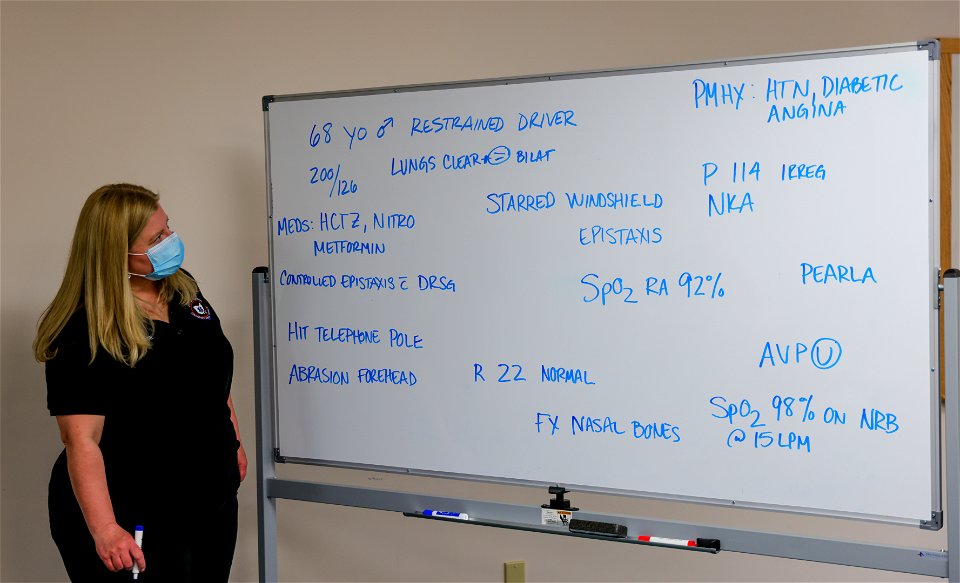 PMHX: HTN, DIABETIC
ANGINA
68 YO ♂ RESTRAINED DRIVER
200/126
LUNGS CLEAR + = BILAT
P 114 IRREG
STARRED WINDSHIELD
NKA
MEDS: HCTZ, NITRO
METFORMIN
EPISTAXIS
CONTROLLED EPISTAXIS c̄ DRSG
SpO2 RA 92%
PEARLA
HIT TELEPHONE POLE
AVPU
ABRASION FOREHEAD
R 22 NORMAL
FX NASAL BONES
SpO2 98% ON NRB
@ 15 LPM